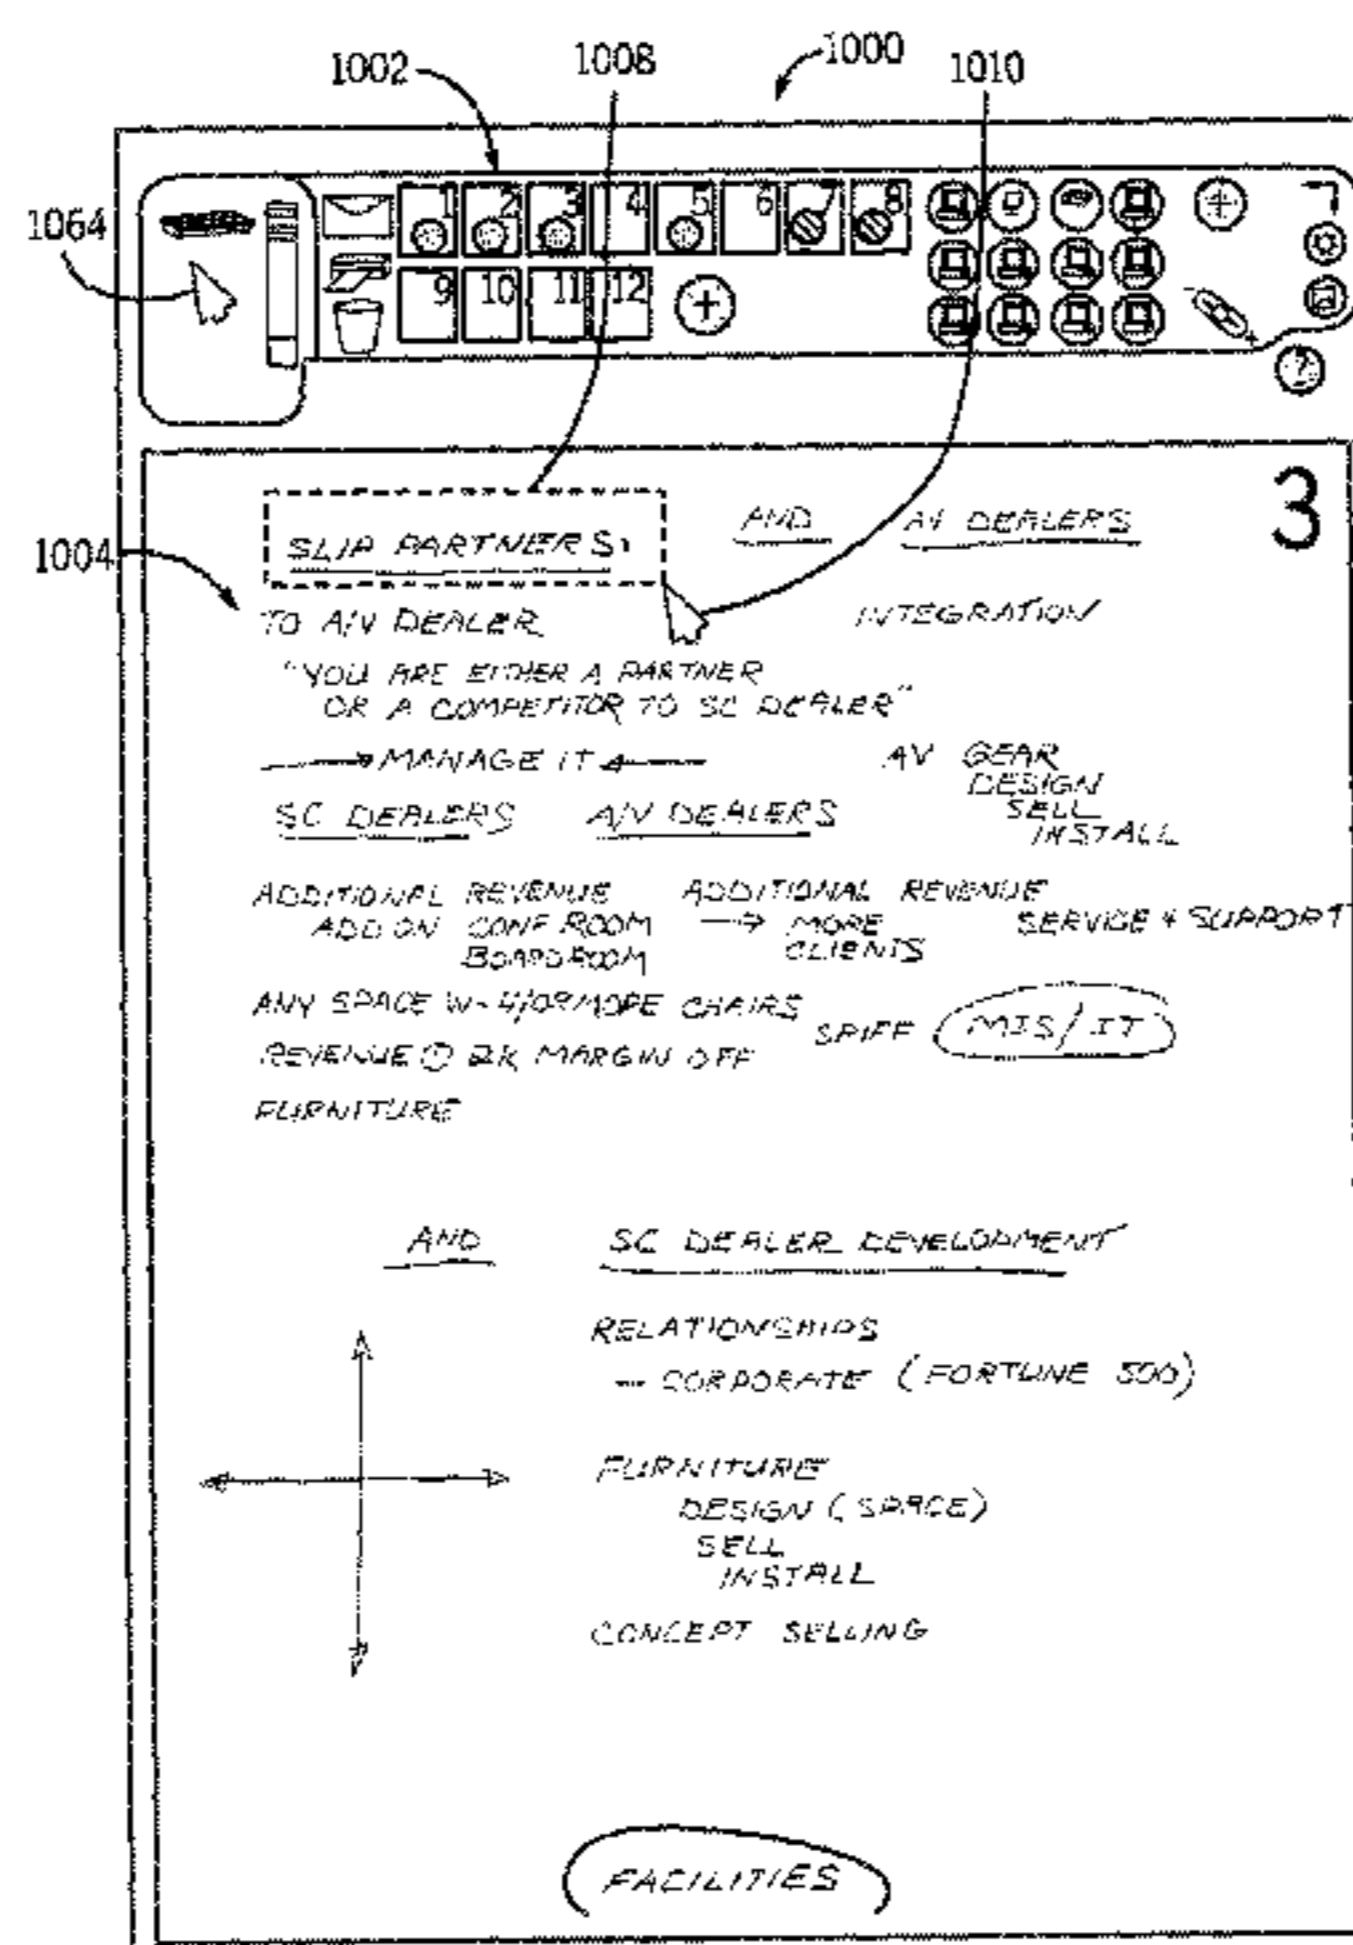 1002 1008 1000 1010
1064
1 2 3 4 5 6 7 8
9 10 11 12
?
3
SLIP PARTNERS AND AV DEALERS
1004
TO A/V DEALER INTEGRATION
"YOU ARE EITHER A PARTNER
OR A COMPETITOR TO SC DEALER"
MANAGE IT AV GEAR
DESIGN
SC DEALERS A/V DEALERS SELL
INSTALL
ADDITIONAL REVENUE ADDITIONAL REVENUE
ADD ON CONF ROOM → MORE SERVICE + SUPPORT
BOARDROOM CLIENTS
ANY SPACE W- 4/OR MORE CHAIRS
SPIFF MIS/IT
REVENUE @ 2K MARGIN OFF
FURNITURE
AND SC DEALER DEVELOPMENT
RELATIONSHIPS
- CORPORATE (FORTUNE 500)
FURNITURE
DESIGN (SPACE)
SELL
INSTALL
CONCEPT SELLING
FACILITIES